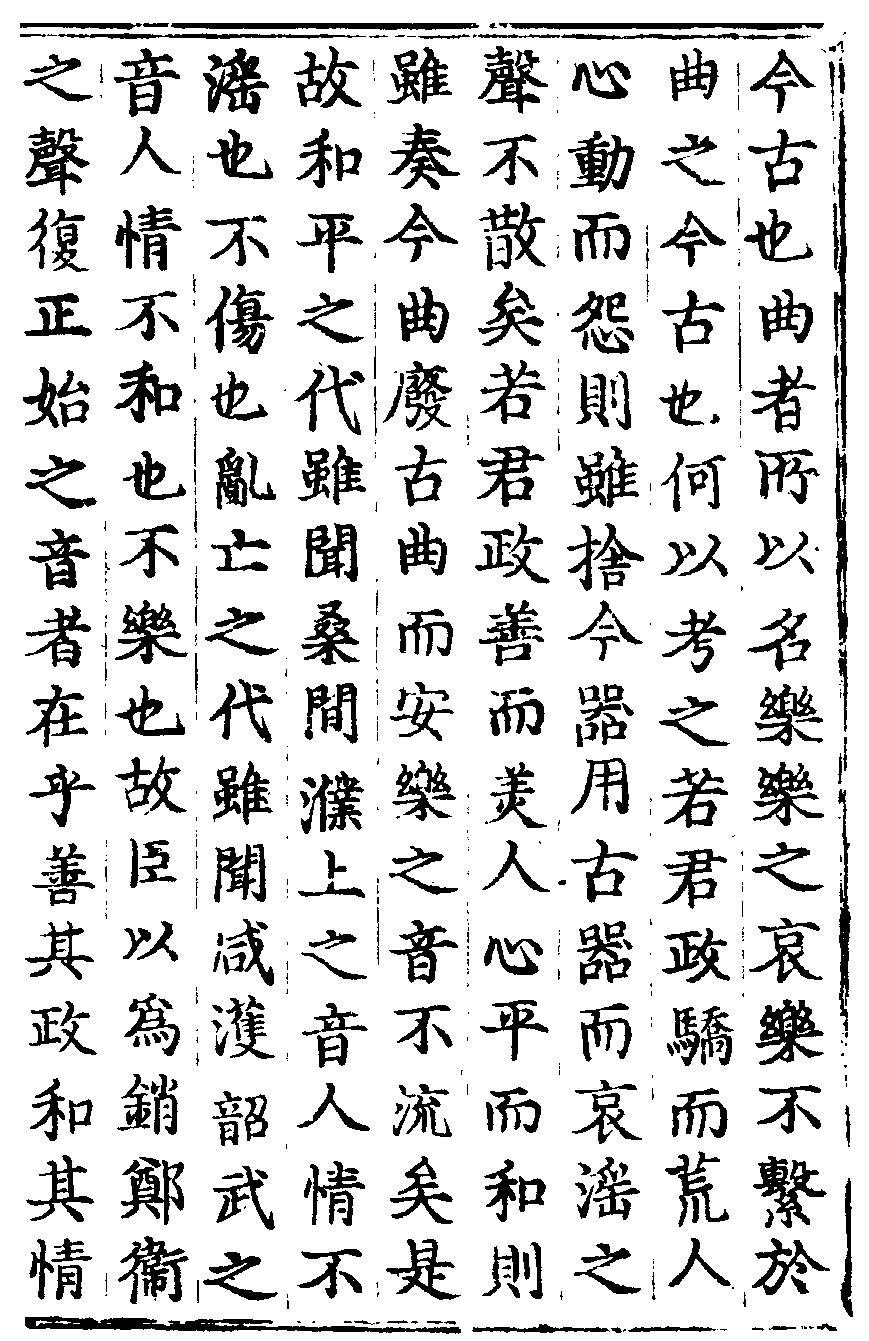 今古也曲者所以名樂樂之哀樂不繫於
曲之今古也何以考之若君政驕而荒人
心動而怨則雖捨今器用古器而哀淫之
聲不散矣若君政善而羙人心平而和則
雖奏今曲廢古曲而安樂之音不流矣是
故和平之代雖聞桑間濮上之音人情不
淫也不傷也亂亡之代雖聞咸濩韶武之
音人情不和也不樂也故臣以為銷鄭衞
之聲復正始之音者在乎善其政和其情